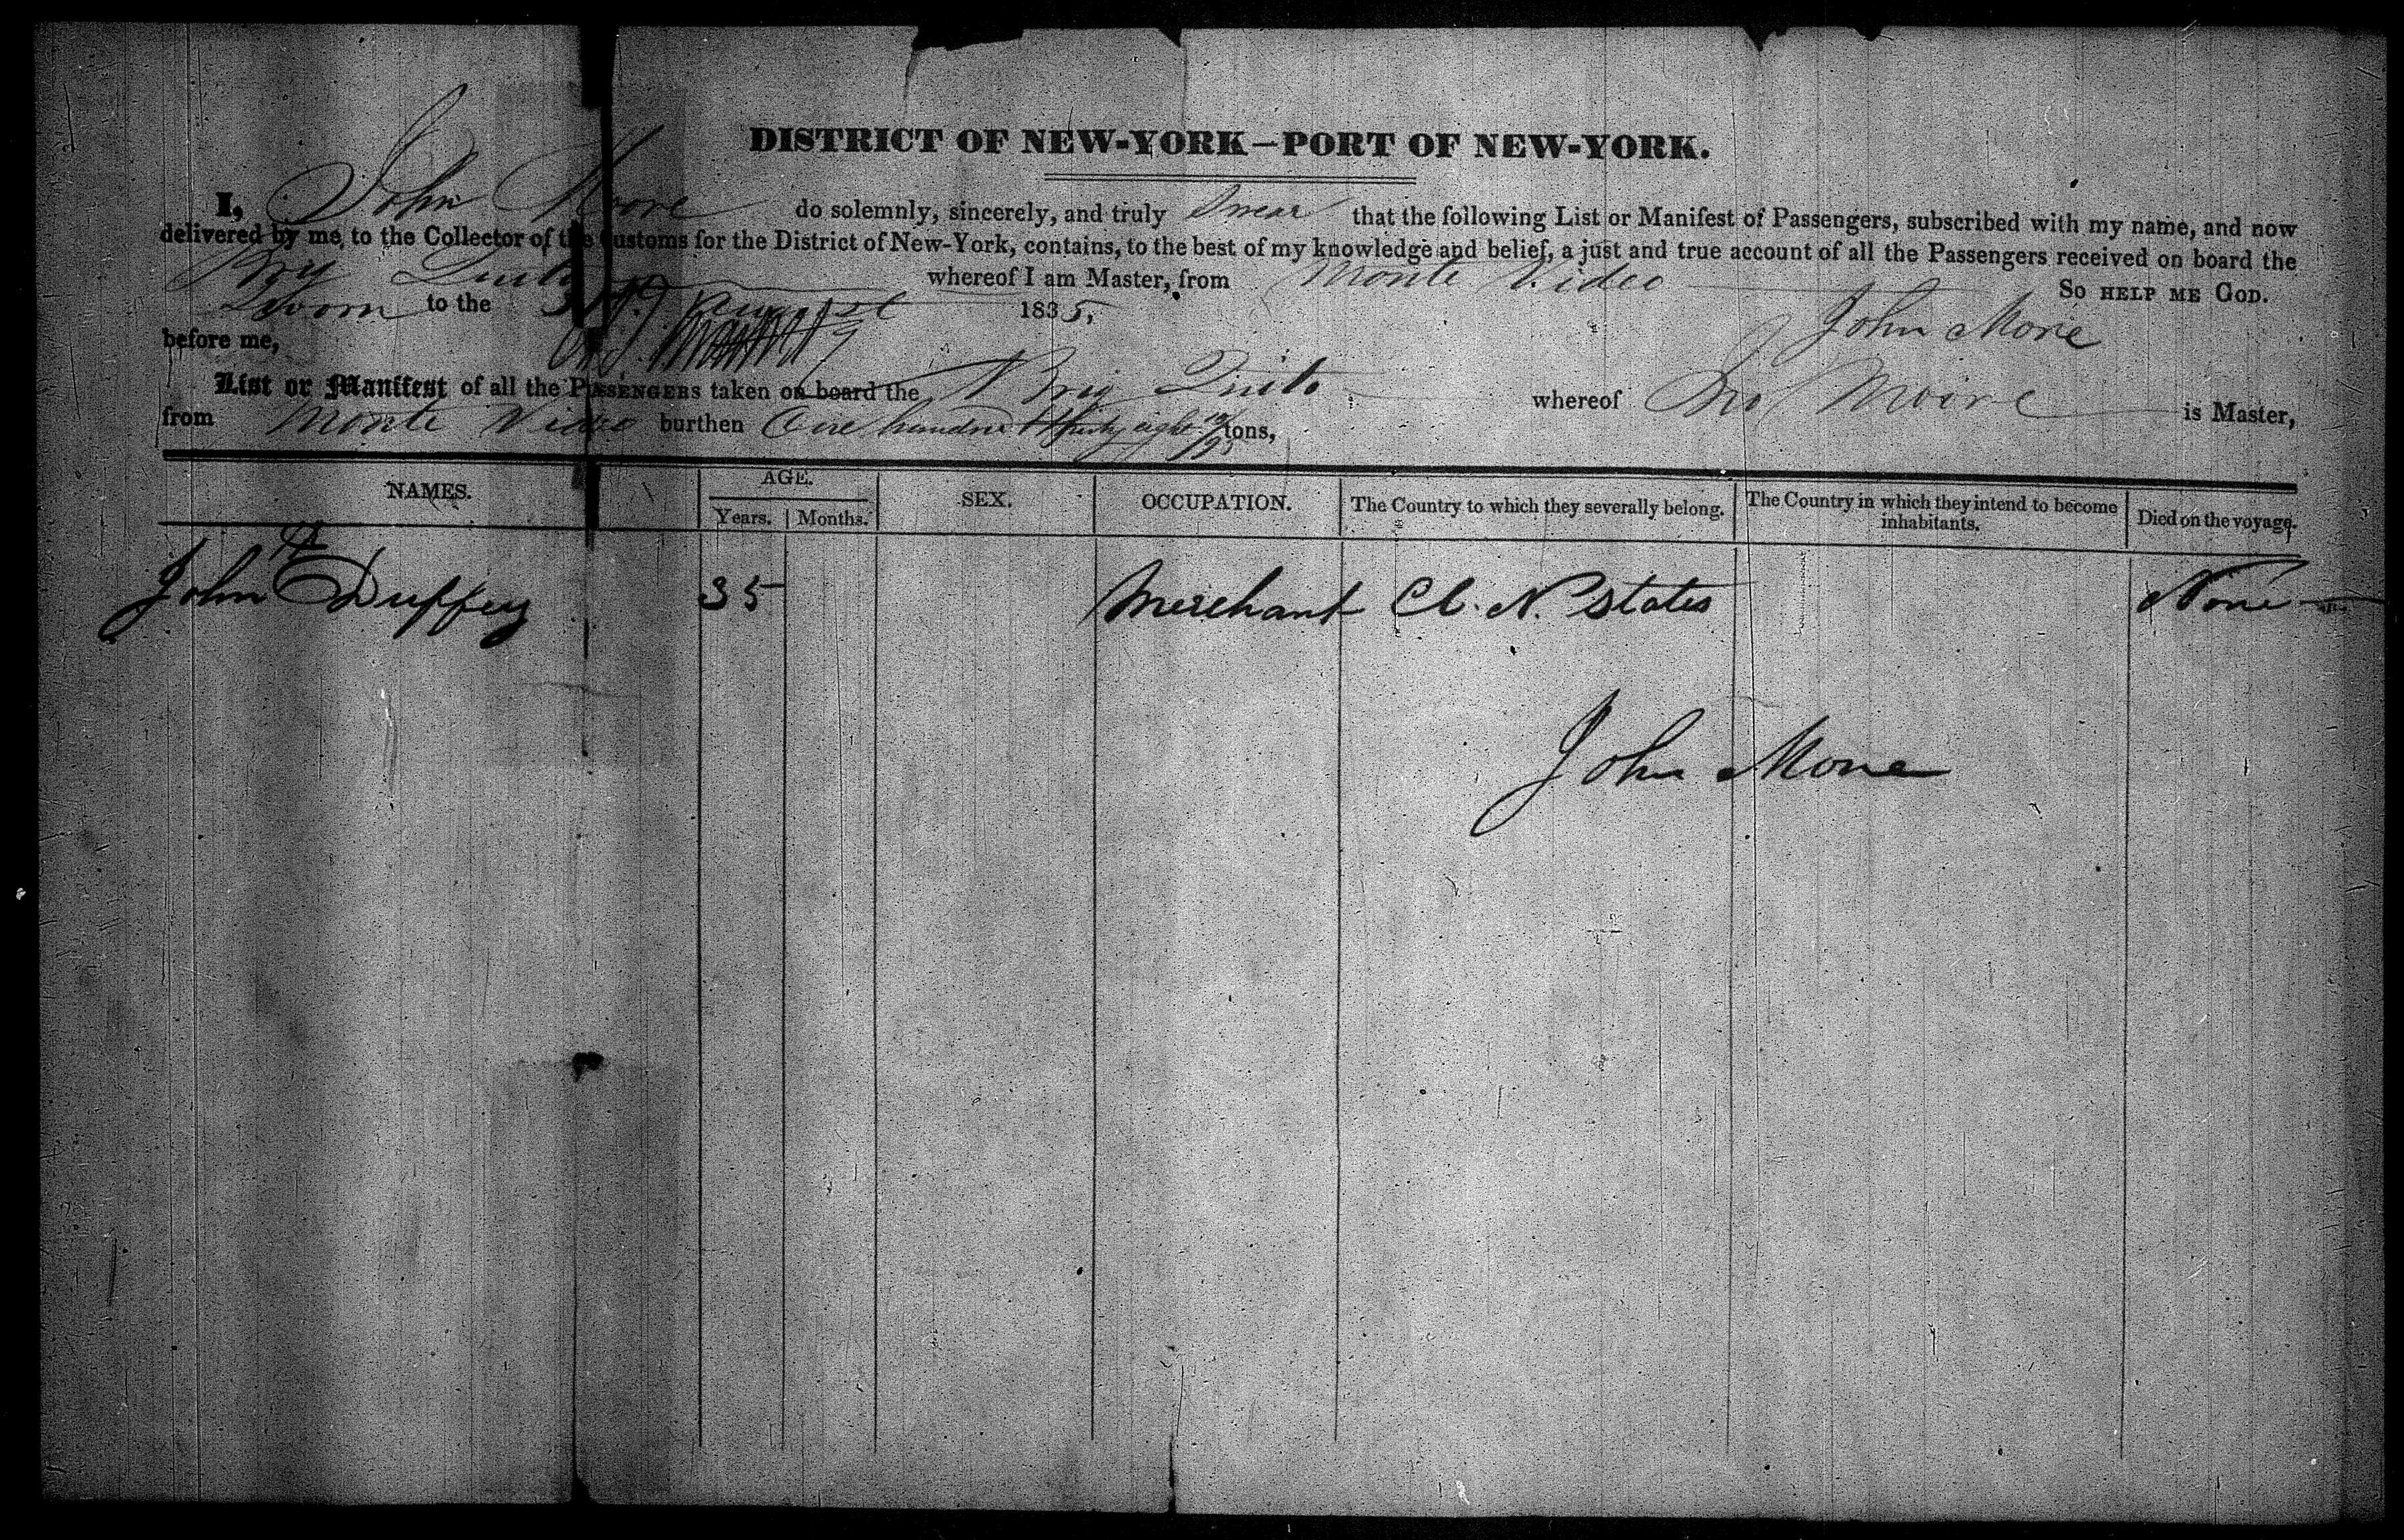 DISTRICT OF NEW-YORK—PORT OF NEW-YORK.
I, John Moore do solemnly, sincerely, and truly Swear that the following List or Manifest of Passengers, subscribed with my name, and now
delivered by me, to the Collector of the Customs for the District of New-York, contains, to the best of my knowledge and belief, a just and true account of all the Passengers received on board the
Brig Quito whereof I am Master, from Monte Video So HELP ME GOD.
Sworn to the August 1835, John More
before me,
List or Manifest of all the PASSENGERS taken on board the Brig Quito whereof Jno Moore is Master,
from Monte Video burthen One hundred & thirty eight tons,
NAMES. AGE. SEX. OCCUPATION. The Country to which they severally belong. The Country in which they intend to become inhabitants. Died on the voyage.
Years. Months.
John Duffey 35 Merchant U. N. States None
John More